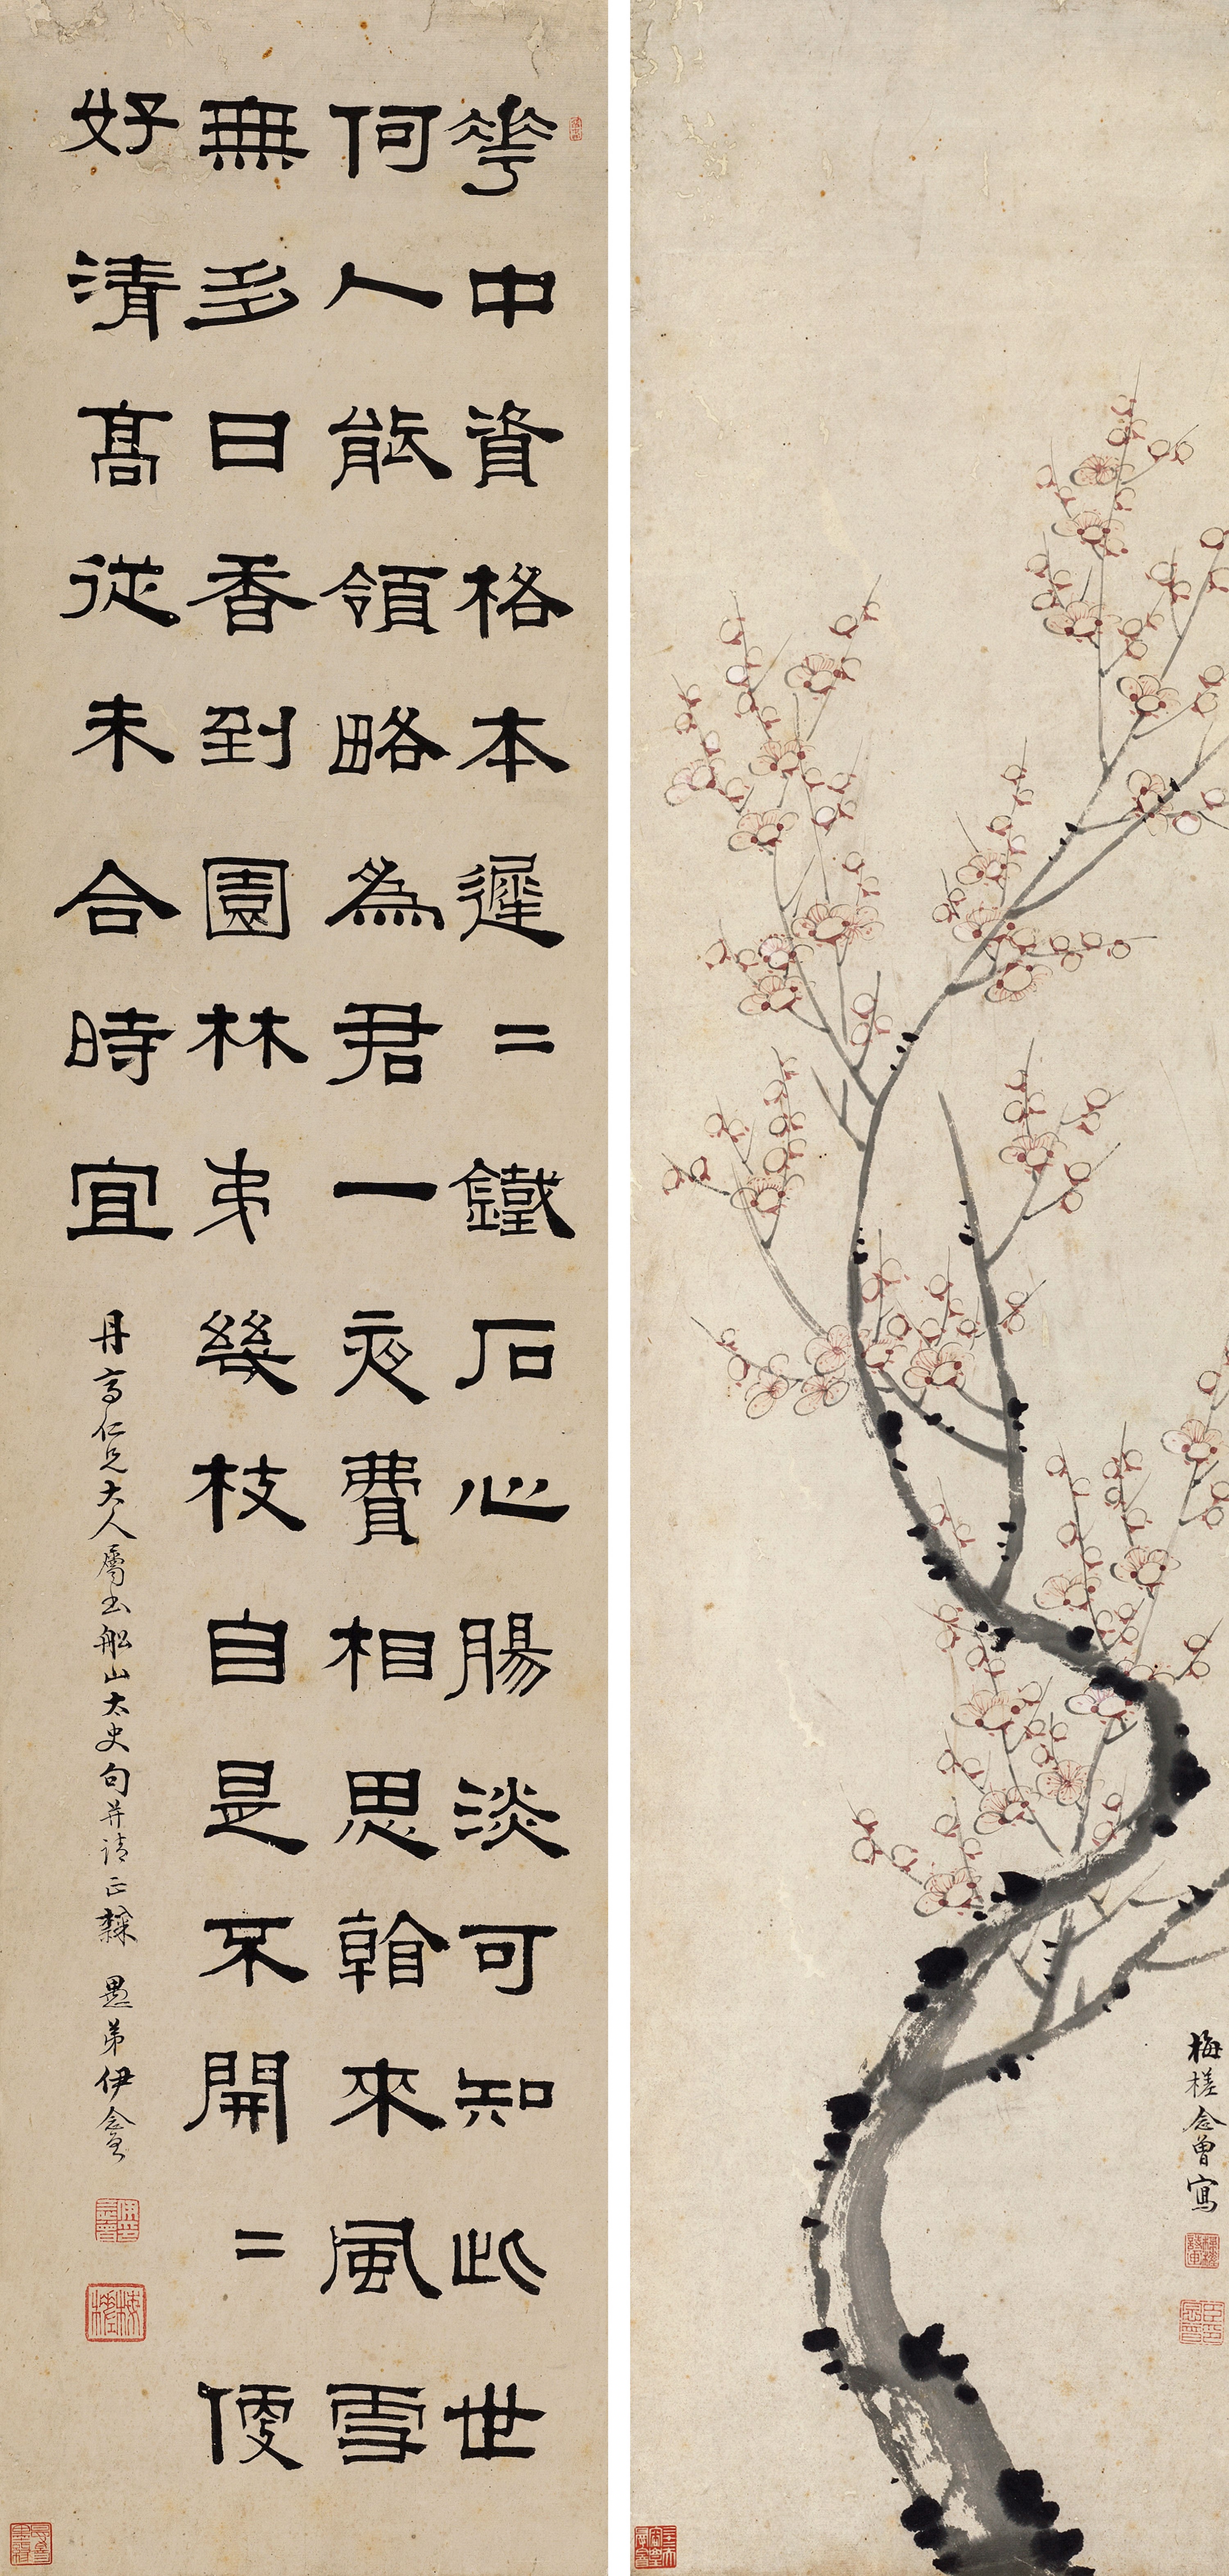 華中資格本遲=鐵石心腸淡可知此世
何人能領略為君一夜費相思看來風雪
無多日香到園林弟幾枝自是不開=便
好清高從未合時宜
丹仁兄大人屬書船山太史句并請正隸 愚弟伊念曾
梅槎
梅槎念曾寫